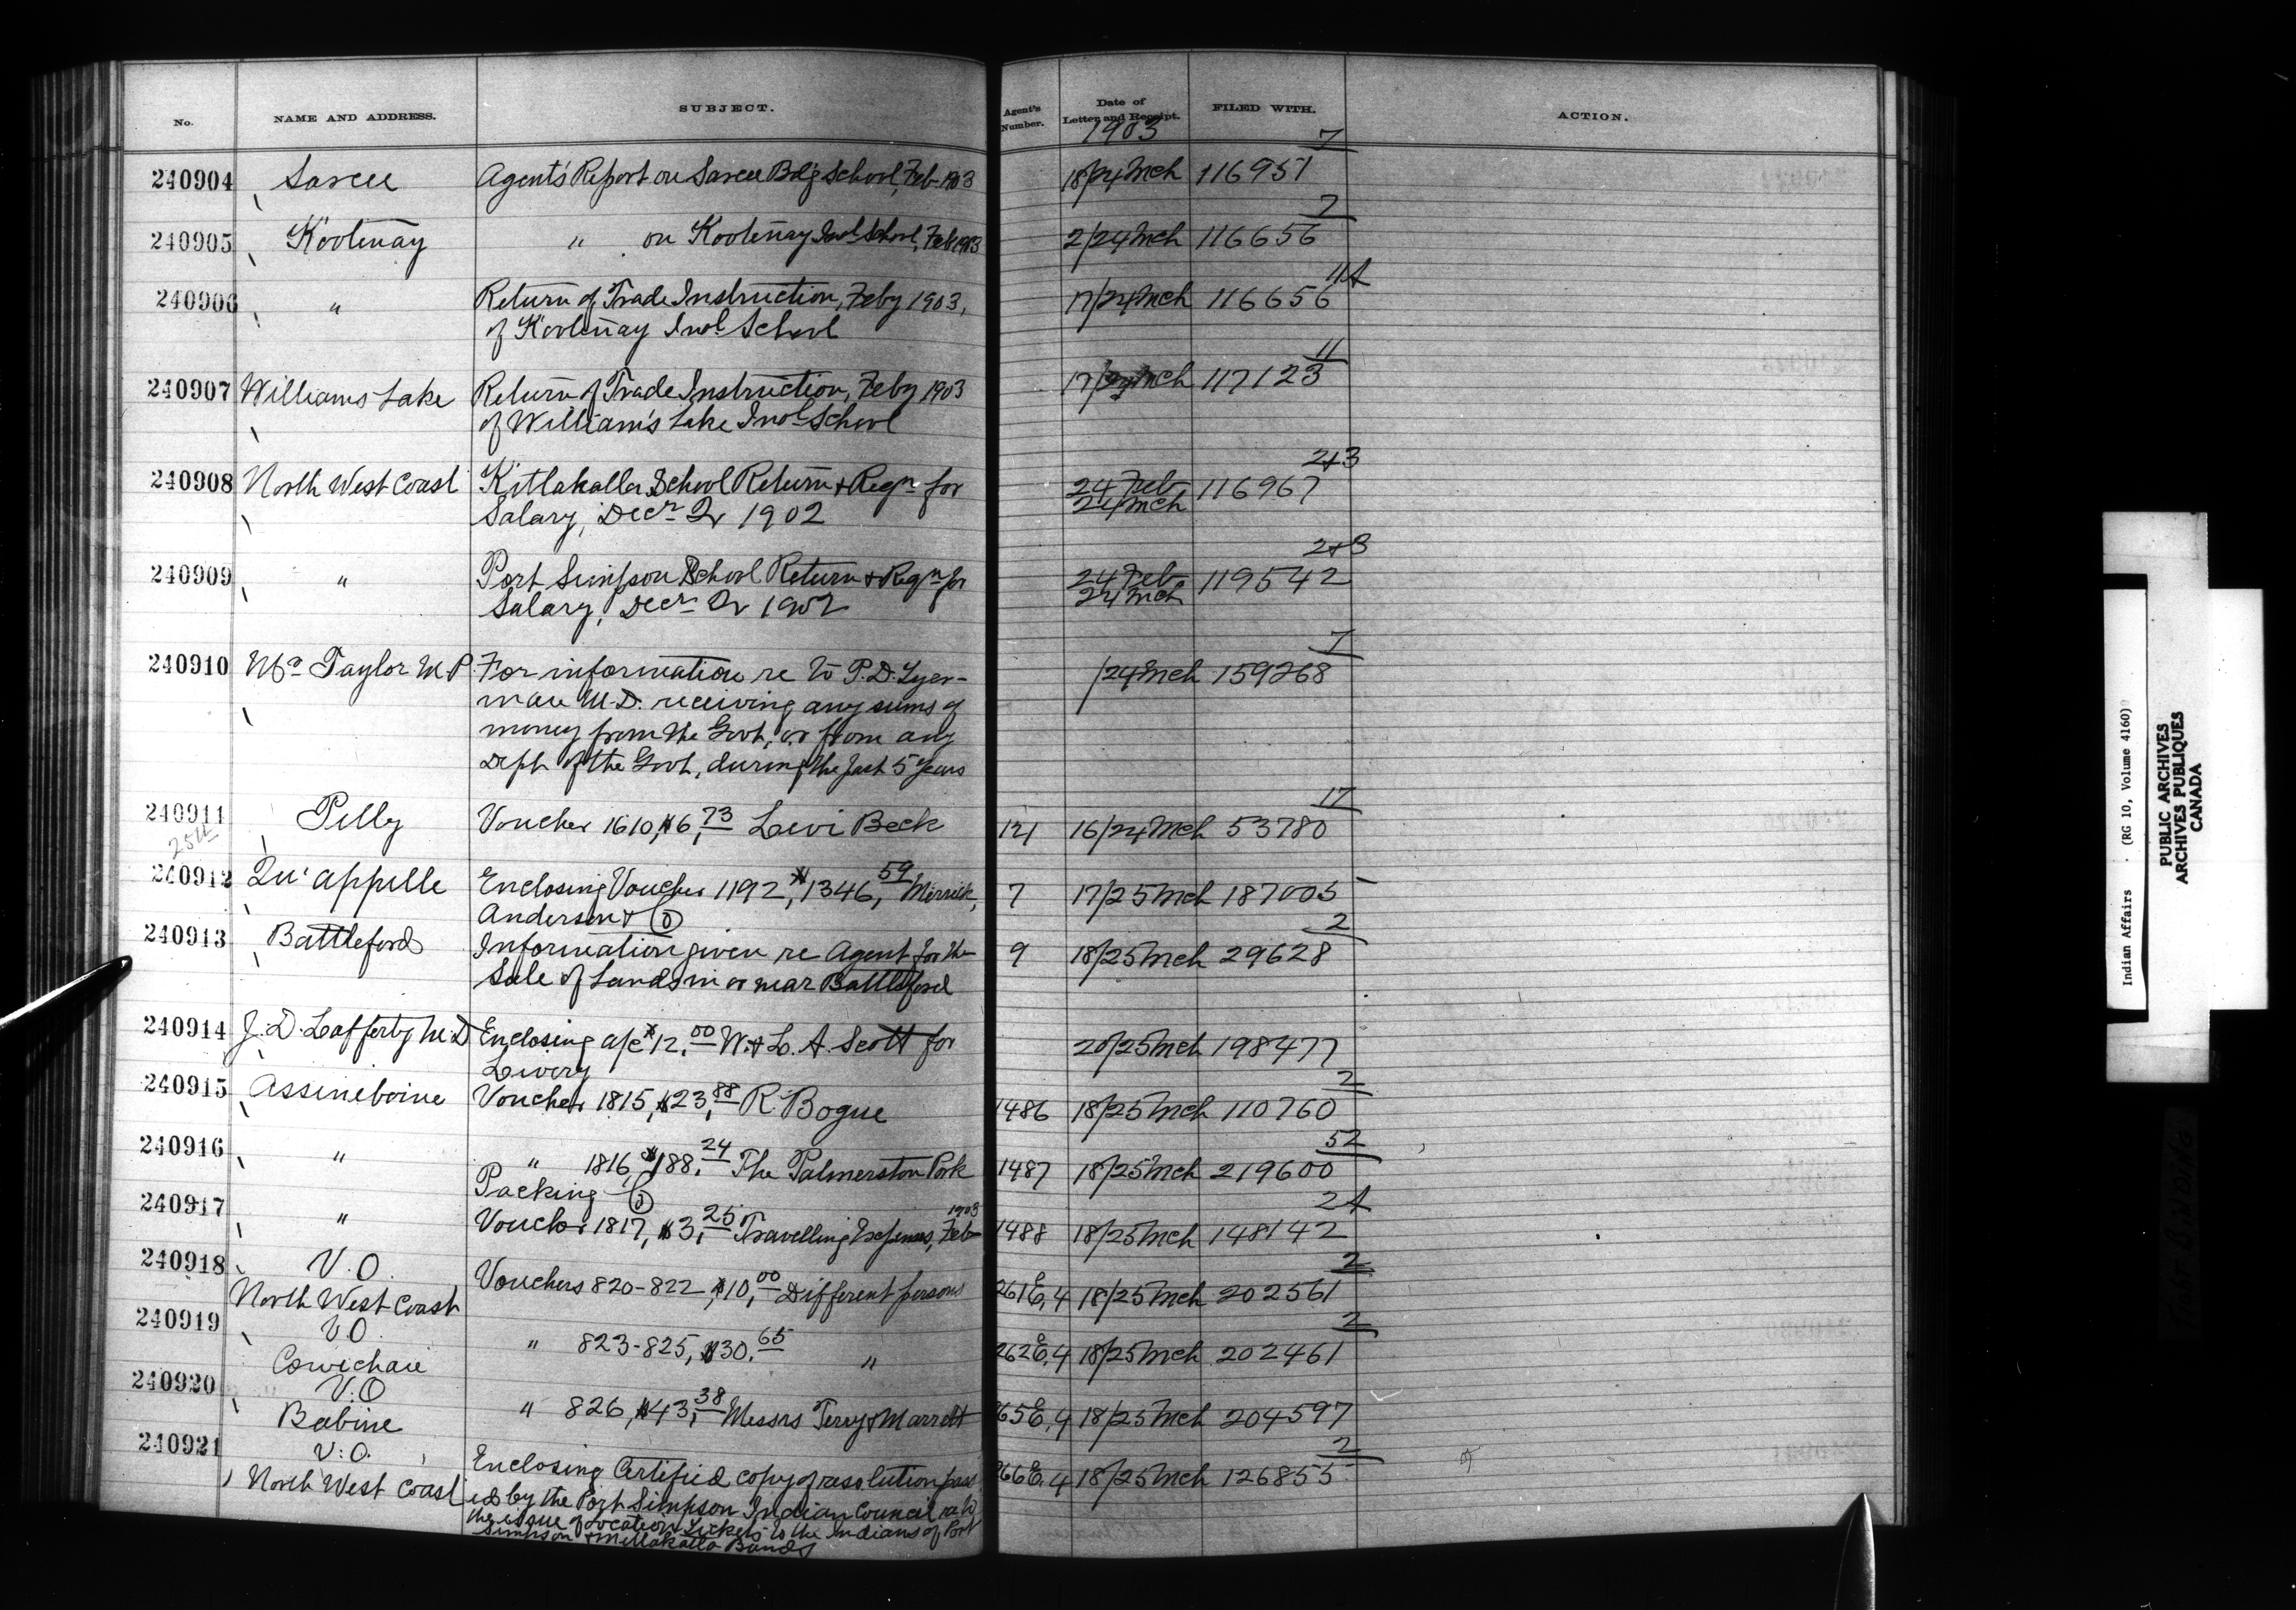 No. NAME AND ADDRESS. SUBJECT. Agent's Number. Date of Letter and Receipt. FILED WITH. ACTION.
1903
7
240904 Sarcee Agent's Report on Sarcee Bdg School, Feb 1903 18/24 Mch 116957
2
240905 Kootenay " on Kootenay Indl School, Feb 1903 2/24 Mch 116656
11A
240906 " Return of Trade Instruction, Feby 1903, 17/24 Mch 116656
of Kootenay Indl School
11
240907 Williams Lake Return of Trade Instruction, Feby 1903 17/24 Mch 117123
of William's Lake Indl School
2+3
240908 North West Coast Kitlakalla School Return + Reqn for 24 Feb 116967
Salary, Decr Qr 1902 24 Mch
2+3
240909 " Port Simpson School Return + Reqn for 24 Feb 119542
Salary, Decr Qr 1902 24 Mch
7
240910 Mr Taylor M.P. For information re to P.D. Tyer- /24 Mch 159268
man M.D. receiving any sums of
money from the Govt, or from any
Dept of the Govt, during the last 5 years
17
240911 Pelly Voucher 1610, $6,73 Levi Beck 121 16/24 Mch 53780
254
240912 Qu'appelle Enclosing Voucher 1192, $1346,59 Mirrick, 7 17/25 Mch 187005
Anderson + Co
2
240913 Battleford Information given re Agent for the 9 18/25 Mch 29628
Sale of Lands in or near Battleford
240914 J.D. Lafferty M.D. Enclosing a/c $12,00 W. + L.A. Scott for 20/25 Mch 198477
Livery
2
240915 Assineboine Voucher 1815, $23,88 R. Bogue 1486 18/25 Mch 110760
52
240916 " " 1816, $188,24 The Palmerston Pork 1487 18/25 Mch 219600
Packing Co
2A
240917 " Voucher 1817, $3,25 Travelling Expenses, Feb 1903 1488 18/25 Mch 148142
2
240918 V.O. Vouchers 820-822, $10,00 Different persons 261E,4 18/25 Mch 202561
North West Coast
2
240919 V.O. " 823-825, $30.65 " 262E,4 18/25 Mch 202461
Cowichan
240920 V.O " 826, $43,38 Messrs Terry + Marrett 265E,4 18/25 Mch 204597
Babine
2
240921 V.O. Enclosing Certified copy of resolution pass 266E,4 18/25 Mch 126855
North West Coast ed by the Port Simpson Indian Council re to
the issue of Location Tickets to the Indians of Port
Simpson + Metlakatla Bands
Indian Affairs . (RG 10, Volume 4160)
PUBLIC ARCHIVES
ARCHIVES PUBLIQUES
CANADA